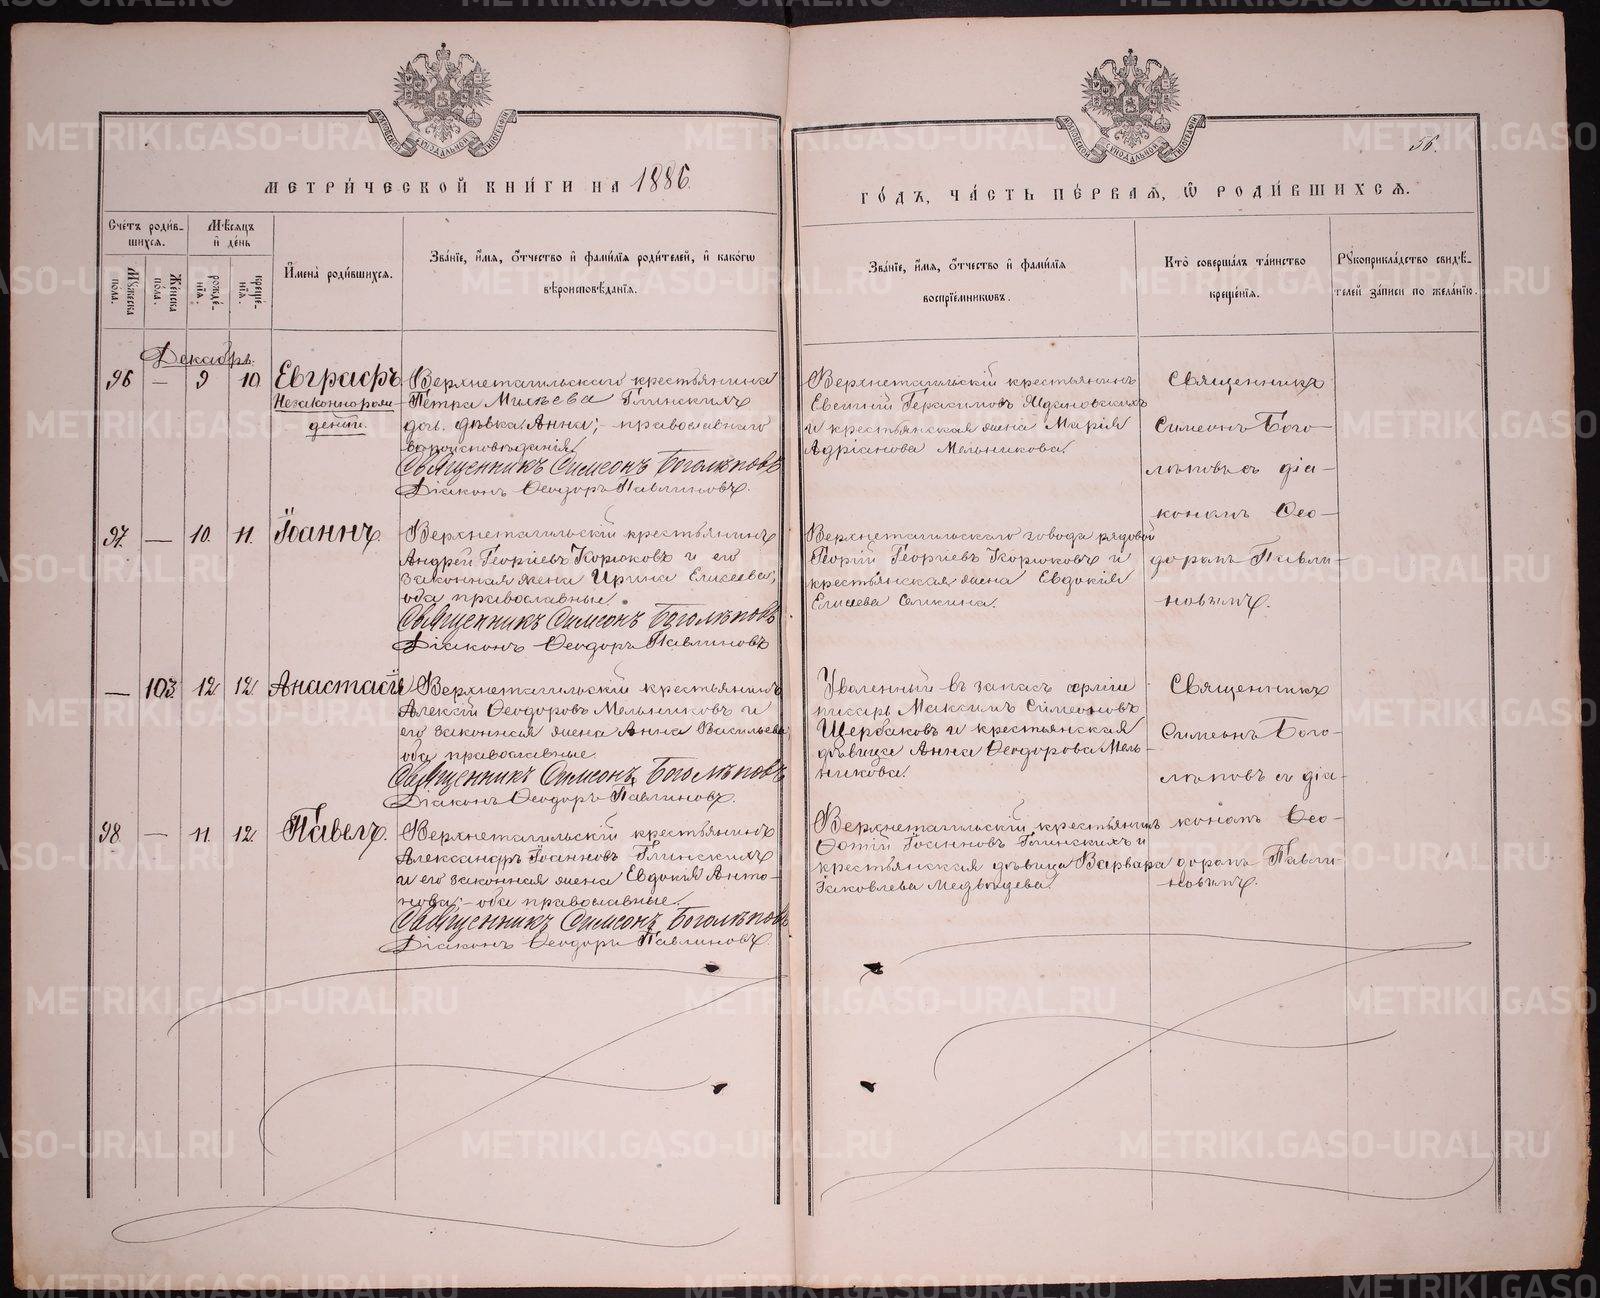 56.
МЕТРИ́ЧЕСКОЙ КНИ́ГИ НА 1886.
ГО́ДЪ, ЧА́СТЬ ПЕ́РВАЯ, Ѡ РОДИ́ВШИХСЯ.
Сче́тъ роди́в-
шихся.
Мѣсяцъ
и де́нь
Му́жеска
пола.
Же́нска
по́ла.
рожде́-
нїя.
креще́-
нїя.
Имена̀ роди́вшихся.
Зва́нїе, и́мя, о́тчество и фами́лїя роди́телей, и како́гѡ
вѣроисповѣ́данїя.
Зва́нїе, и́мя, о́тчество и фами́лїя
воспрїе́мникѡвъ.
Кто̀ соверша́лъ та́инство
креще́нїя.
Рукоприкла́дство свидѣ́-
телей за́писи по жела́нїю.
Декабрь.
96 — 9 10 Евграфъ
Незаконнорож-
денный.
Верхнетагильскаго крестьянина
Петра Глинскихъ
дочь дѣвка Анна; православнаго
вѣроисповѣданія.
Священникъ Симеонъ Боголѣповъ
Діаконъ Ѳеодоръ Павлиновъ.
Верхнетагильскій крестьянинъ
Евгеній Герасимовъ
и крестьянская жена Марія
Адріанова Мельникова.
Священникъ
Симеонъ Бого-
лѣповъ съ діа-
кономъ Ѳео-
доромъ Павли-
новымъ.
97. — 10. 11. Іоаннъ.
Верхнетагильскій крестьянинъ
Андрей Георгіевъ Корюковъ и его
законная жена Ирина Елисеева;
оба православные.
Священникъ Симеонъ Боголѣповъ
Діаконъ Ѳеодоръ Павлиновъ
Верхнетагильскаго завода рядовой
Георгій Георгіевъ Корюковъ и
крестьянская жена Евдокія
Елисеева
— 103 12 12. Анастасія
Верхнетагильскій крестьянинъ
Алексій Ѳеодоровъ Мельниковъ и
его законная жена Анна Васильева,
оба православные.
Священникъ Симеонъ Боголѣповъ
Діаконъ Ѳеодоръ Павлиновъ.
Уволенный въ запасъ арміи
писарь Максимъ Симеоновъ
Щербаковъ и крестьянская
дѣвица Анна Ѳеодорова Мель-
никова.
Священникъ
Симеонъ Бого-
лѣповъ съ діа-
кономъ Ѳео-
доромъ Павли-
новымъ.
98. — 11. 12. Павелъ.
Верхнетагильскій крестьянинъ
Александръ Іоанновъ Глинскихъ
и его законная жена Евдокія Анто-
нова; оба православные.
Священникъ Симеонъ Боголѣповъ
Діаконъ Ѳеодоръ Павлиновъ.
Верхнетагильскій крестьянинъ
Фотій Іоанновъ Глинскихъ и
крестьянская дѣвица Варвара
Іаковлева Медвѣдева.
METRIKI.GASO-URAL.RU